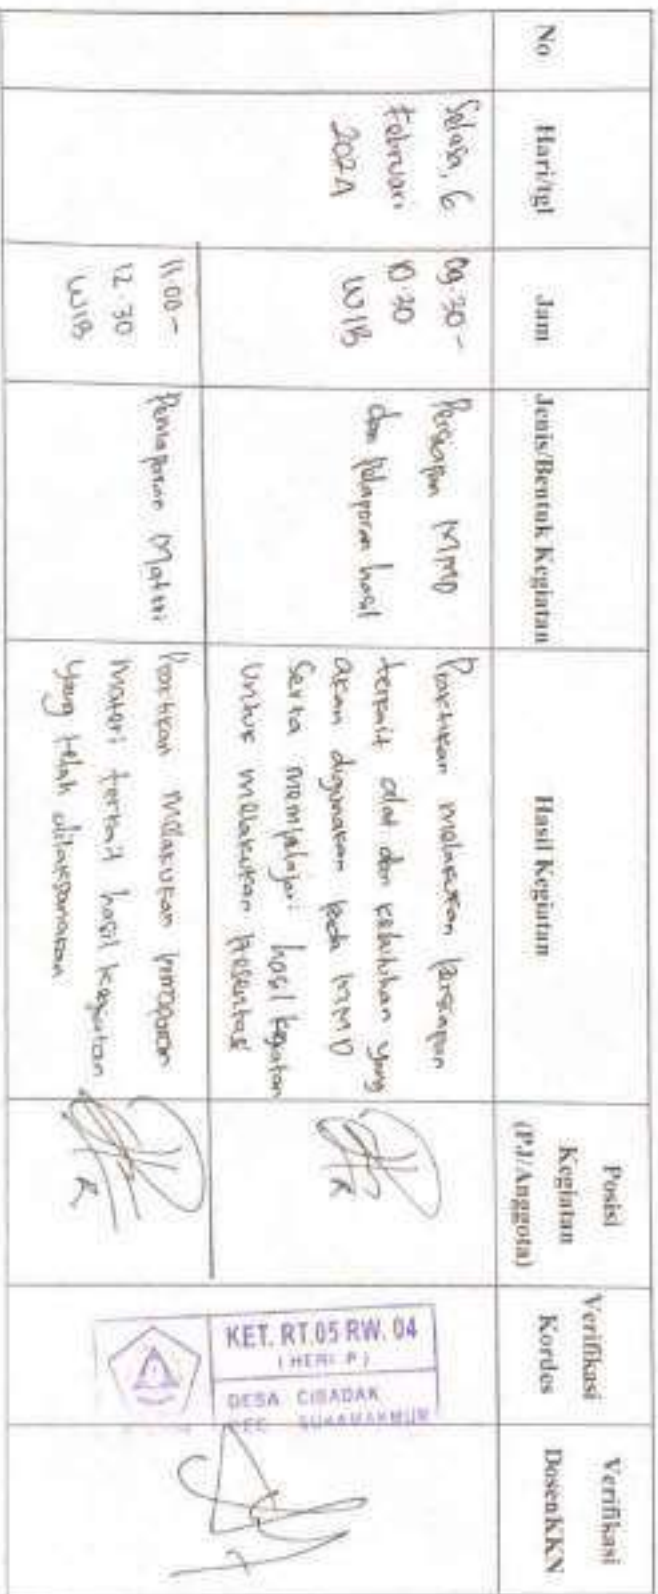 No
Hari/tgl
Jam
Jenis/Bentuk Kegiatan
Hasil Kegiatan
Posisi
Kegiatan
(PJ/Anggota)
Verifikasi
Kordes
Verifikasi
Dosen KKN
Selasa, 6
Februari
2024
09.30-
10.30
WIB
Persiapan MMD
dan pelaporan hasil
Praktikan melakukan persiapan
terkait alat dan kebutuhan yang
akan digunakan pada MMD
Serta mempelajari hasil kegiatan
untuk melakukan presentasi
11.00-
12.30
WIB
Pemaparan Materi
Praktikan melakukan pemaparan
materi terkait hasil kegiatan
yang telah dilaksanakan
KET. RT.05 RW. 04
( HERI P )
DESA CIBADAK
KEC. SUKAMAKMUR